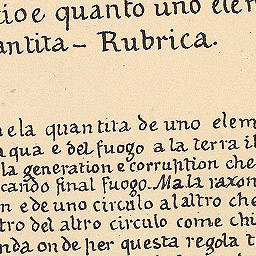 tioe quanto uno elem
antita - Rubrica.
la quantita de uno elem
aqua e del fuogo a la terra il
la generation e corruption che
cando final fuogo. Ma la raxon
n e de uno circulo al altro che
tro del altro circulo come chi
nda on de per questa regola t